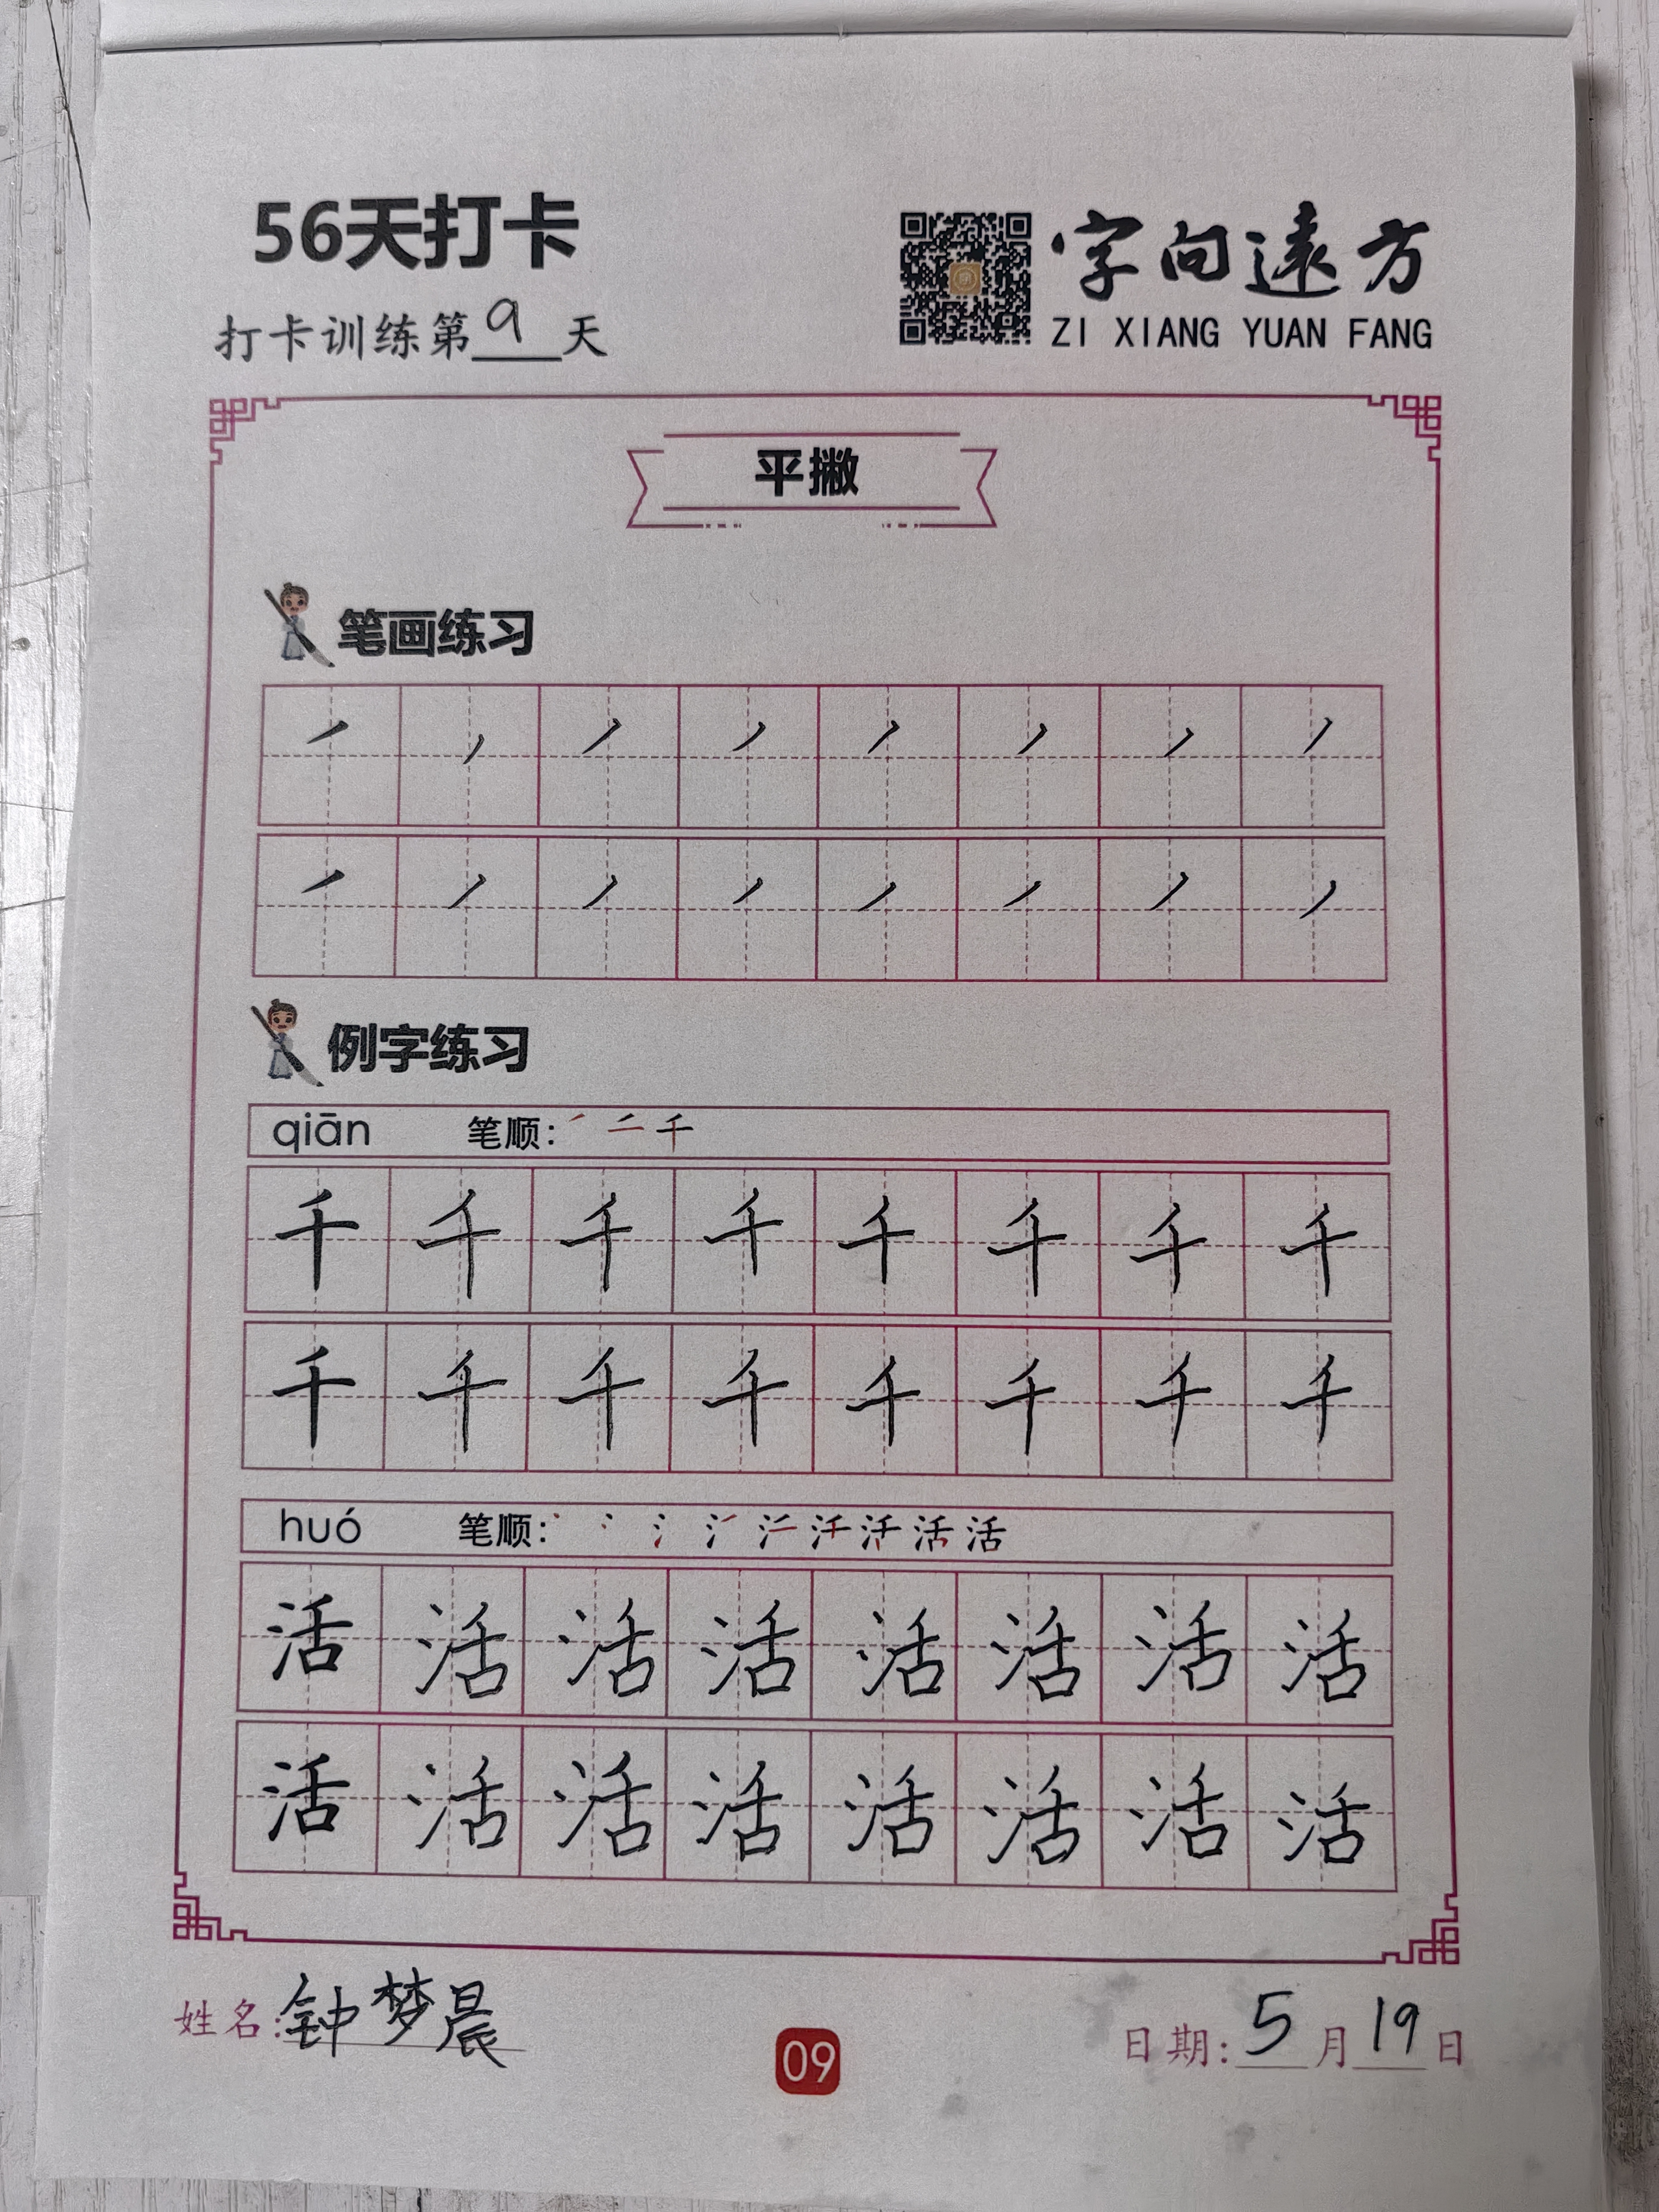 56天打卡
字向遠方
打卡训练第9天
ZI XIANG YUAN FANG
平撇
笔画练习
㇒ ㇒ ㇒ ㇒ ㇒ ㇒ ㇒ ㇒
㇒ ㇒ ㇒ ㇒ ㇒ ㇒ ㇒ ㇒
例字练习
qiān 笔顺: ㇒ 二 千
千 千 千 千 千 千 千 千
千 千 千 千 千 千 千 千
huó 笔顺: 活
活 活 活 活 活 活 活 活
活 活 活 活 活 活 活 活
姓名:钟梦晨
09
日期:5月19日